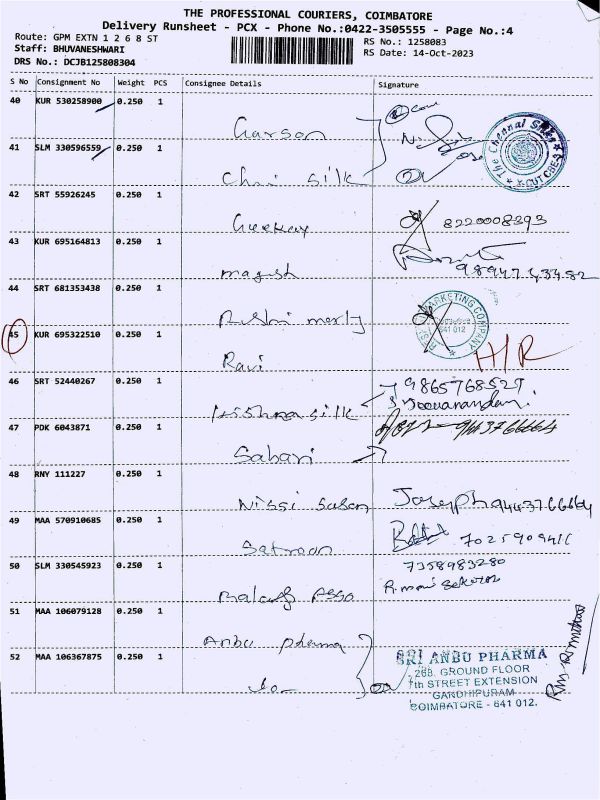 THE PROFESSIONAL COURIERS, COIMBATORE
Delivery Runsheet - PCX - Phone No.:0422-3505555 - Page No.:4
Route: GPM EXTN 1 2 6 8 ST
Staff: BHUVANESHWARI
DRS No.: DCJB125808304
RS No.: 1258083
RS Date: 14-Oct-2023
S No Consignment No Weight PCS Consignee Details Signature
40 KUR 530258900 0.250 1
Garson
41 SLM 330596559 0.250 1
Chni silk
The Chennai Silks
42 SRT 55926245 0.250 1
Geekay 8220008393
43 KUR 695164813 0.250 1
magesh
44 SRT 681353438 0.250 1
MARKETING COMPANY
641 012
45 KUR 695322510 0.250 1
Ravi
H/R
46 SRT 52440267 0.250 1
Krishna silk
S. Jeevanandam
47 PDK 6043871 0.250 1
Sabari
48 RNY 111227 0.250 1
Nissi
Joseph 9443766664
49 MAA 570910685 0.250 1
50 SLM 330545923 0.250 1
7358983280
51 MAA 106079128 0.250 1
Anbu pharma
52 MAA 106367875 0.250 1
SRI ANBU PHARMA
268, GROUND FLOOR
7th STREET EXTENSION
GANDHIPURAM
COIMBATORE - 641 012.